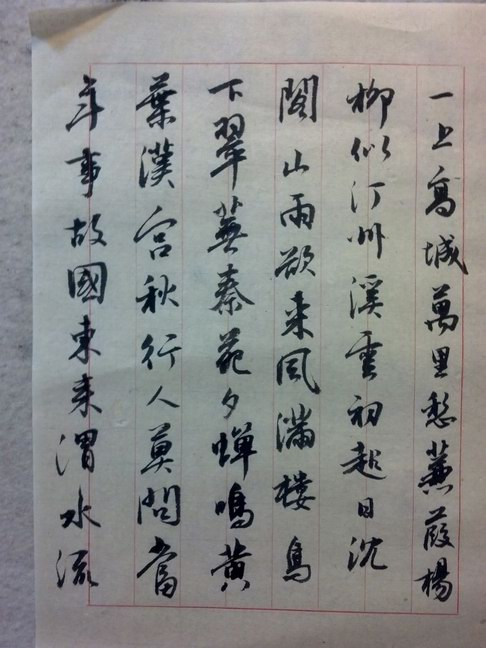 一上高城萬里愁蒹葭楊
柳似汀州溪雲初起日沈
閣山雨欲來風滿樓鳥
下翠蕪秦苑夕蟬鳴黃
葉漢宮秋行人莫問當
年事故國東來渭水流